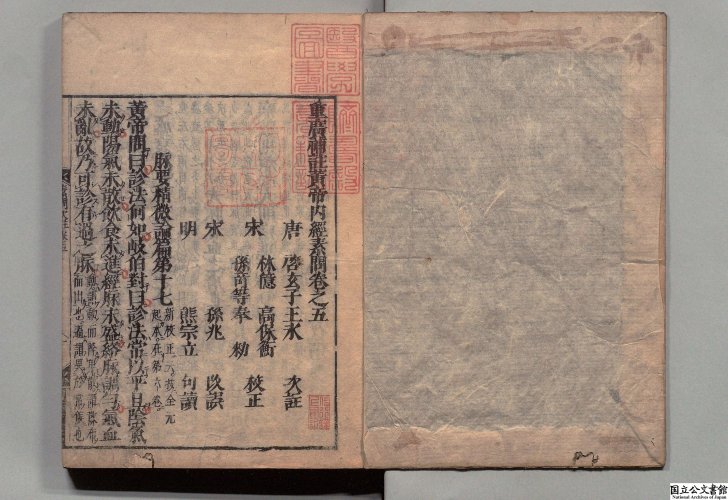 重廣補註黃帝内經素問卷之五
唐 啓玄子王氷 次註
宋 林億 高保衡
孫竒等奉 勅 校正
宋 孫兆 改誤
明 熊宗立 句讀
脉要精微論篇第十七
新校正云按全元
起本在第六卷
黃帝問曰診法何如岐伯對曰診法常以平旦陰氣
未動陽氣未散飲食未進經脉未盛絡脉調匀氣血
未亂故乃可診有過之脉
国立公文書館
National Archives of Japan